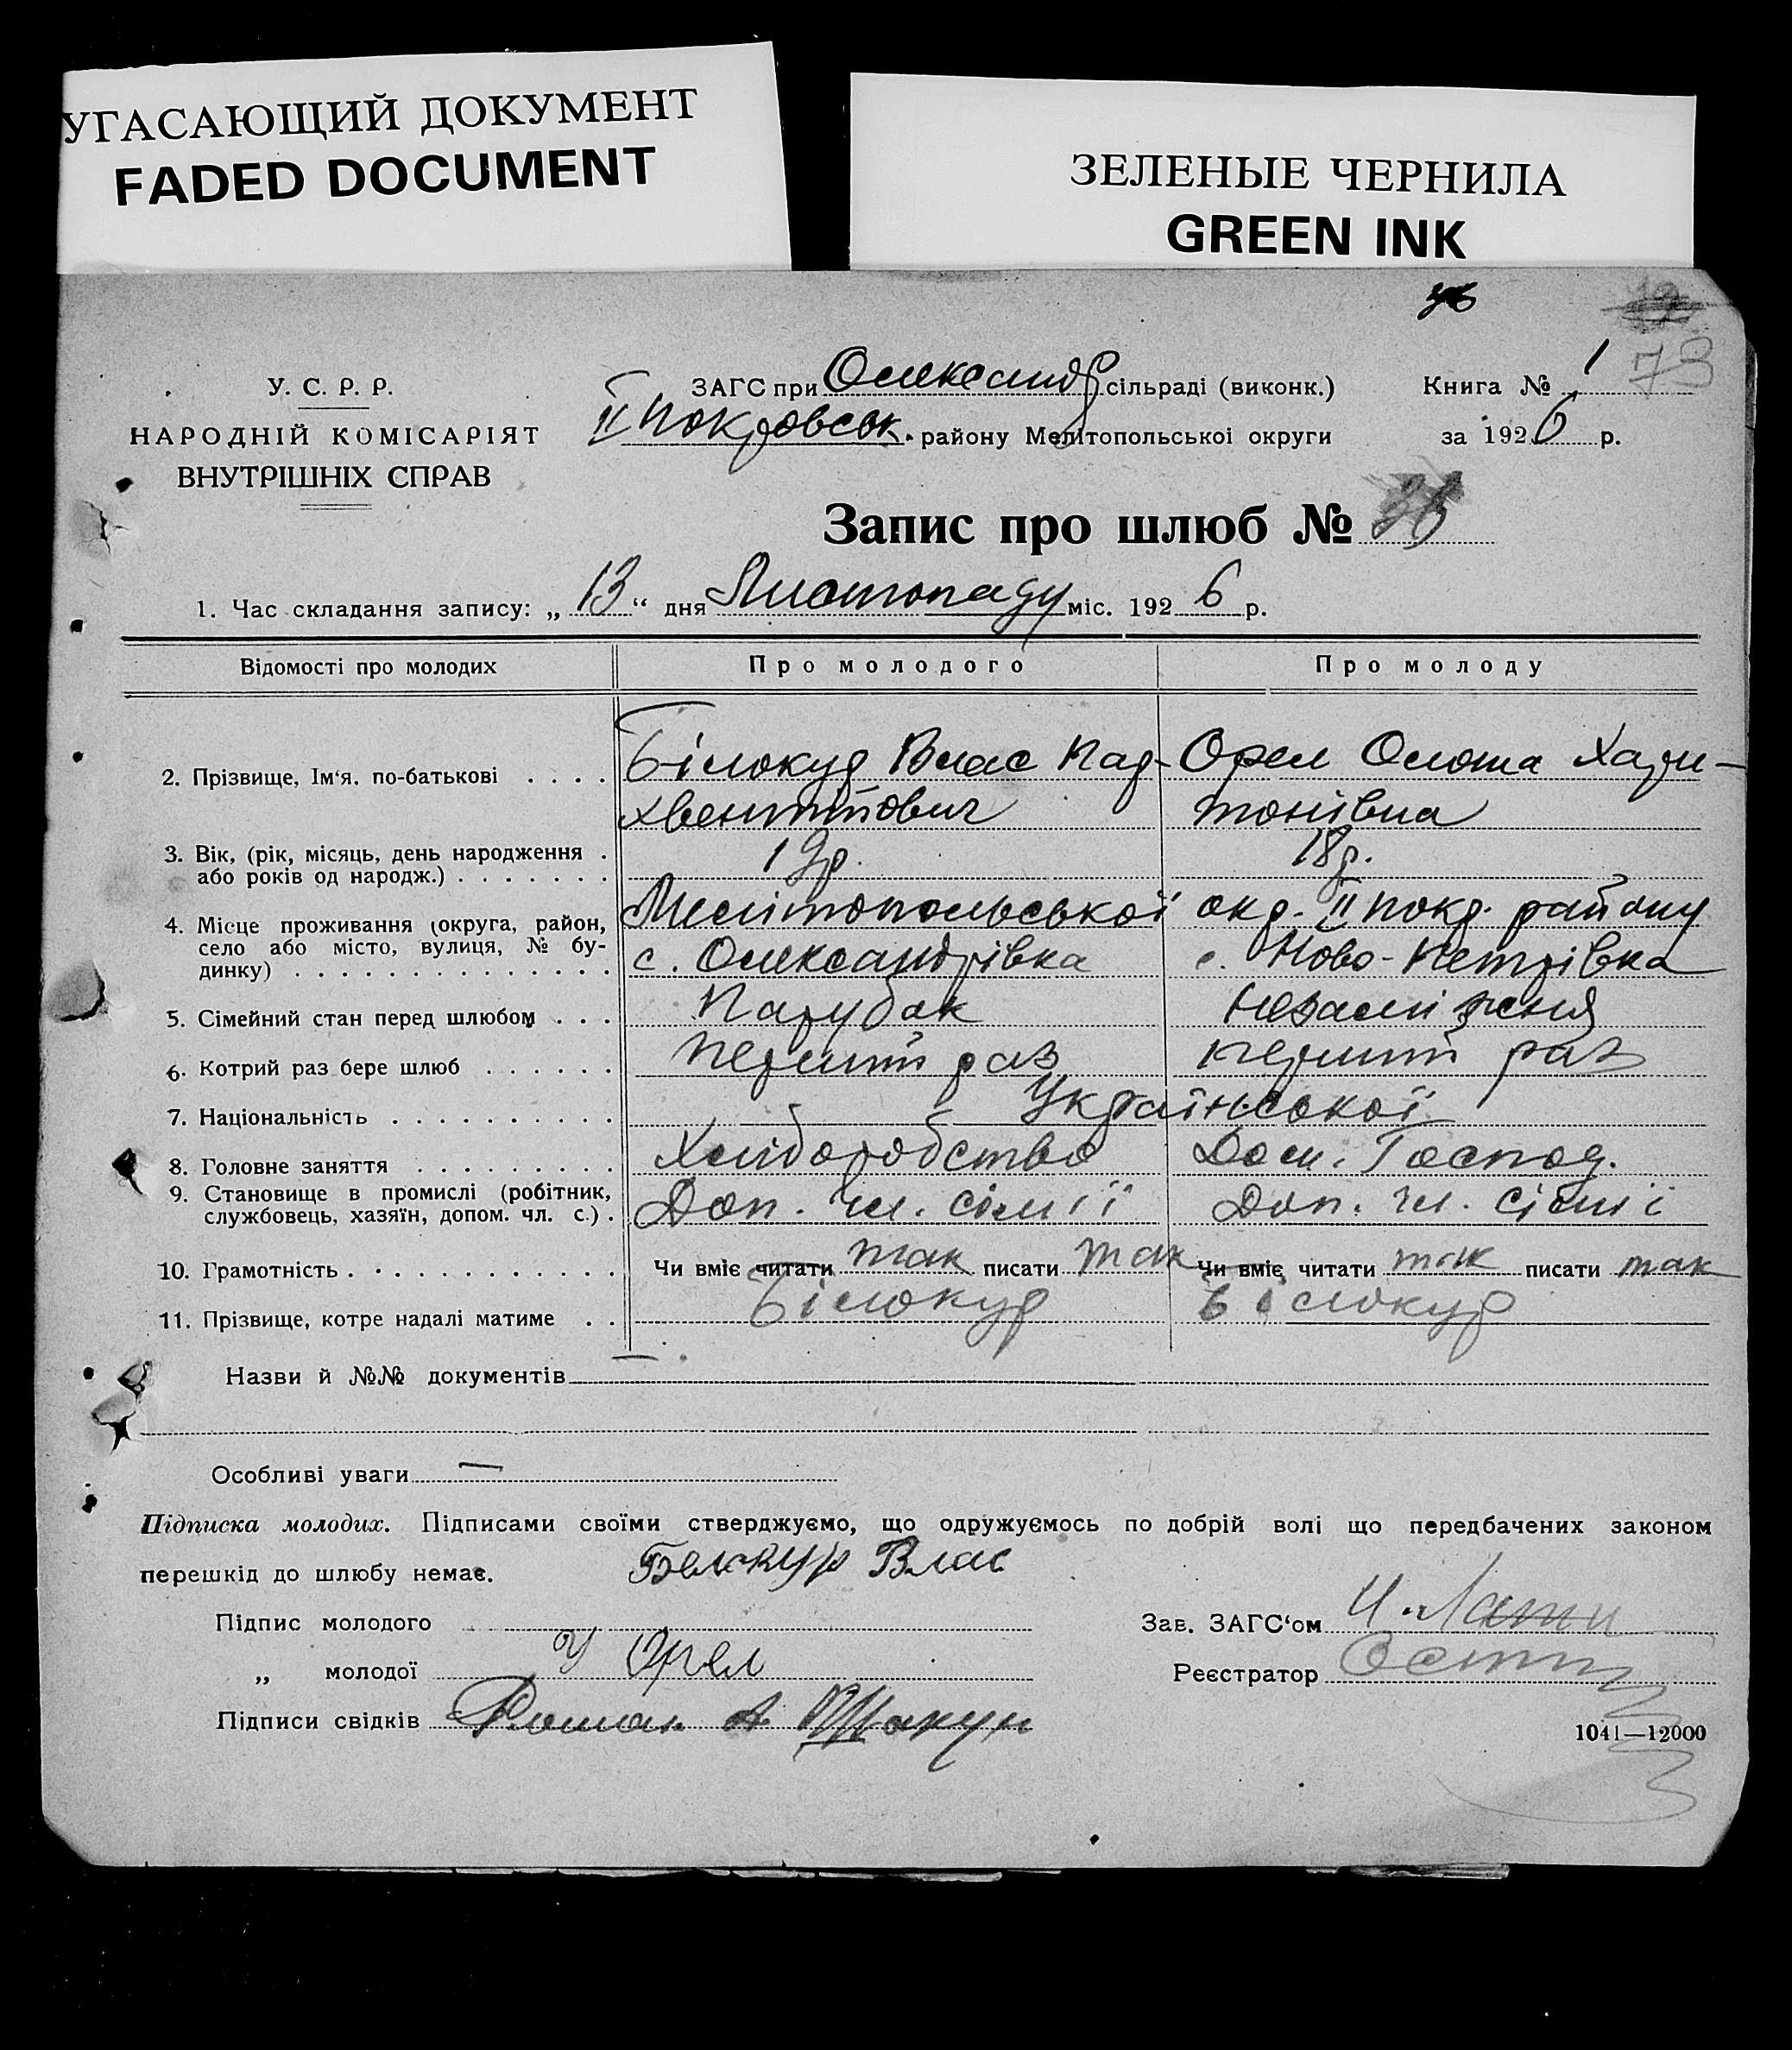 УГАСАЮЩИЙ ДОКУМЕНТ
FADED DOCUMENT
ЗЕЛЕНЫЕ ЧЕРНИЛА
GREEN INK
36
73
У. С. Р. Р.
НАРОДНІЙ КОМІСАРІЯТ
ВНУТРІШНІХ СПРАВ
ЗАГС при Олександр сільраді (виконк.)
II Покровськ. району Мелітопольської округи
Книга № 1
за 1926 р.
Запис про шлюб № 36
1. Час складання запису: „13“ дня Листопаду міс. 1926 р.
Відомості про молодих Про молодого Про молоду
2. Прізвище, Ім‘я. по-батькові . . . . Білокур Влас Пар- Орел Олюта Хари-
хвентійович тонівна
3. Вік, (рік, місяць, день народження . 19р. 18р.
або років од народж.) . . . . . . .
4. Місце проживання (округа, район, Мелітопольської окр. II Покр. району
село або місто, вулиця, № бу- с. Олександрівка с. Ново-Петрівка
динку) . . . . . . . . . . . . . .
5. Сімейний стан перед шлюбом . . . Парубок Незаміжня
6. Котрий раз бере шлюб . . . . . . Перший раз Перший раз
7. Національність . . . . . . . . . . Української
8. Головне заняття . . . . . . . . . Хліборобство Дом. Господ.
9. Становище в промислі (робітник, Доп. чл. сімії Доп. чл. сімії
службовець, хазяїн, допом. чл. с.) .
10. Грамотність . . . . . . . . . . . . Чи вміє читати так писати так Чи вміє читати так писати так
11. Прізвище, котре надалі матиме . . Білокур Білокур
Назви й №№ документів —
Особливі уваги —
Підписка молодих. Підписами своїми стверджуємо, що одружуємось по добрій волі що передбачених законом
перешкід до шлюбу немає. Белокур Влас
Підпис молодого
„ молодої У Орел
Підписи свідків
Зав. ЗАГС‘ом
Реєстратор
1041—12000